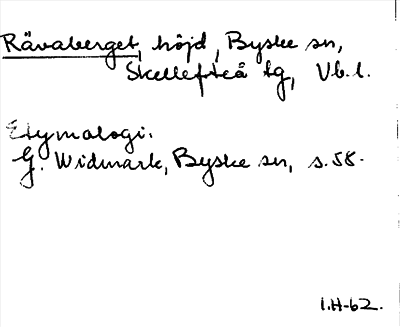 Rävaberget, höjd, Byske sn,
Skellefteå tg, Vb.l.
Etymologi.
G. Widmark, Byske sn, s.58.
I.H-62.